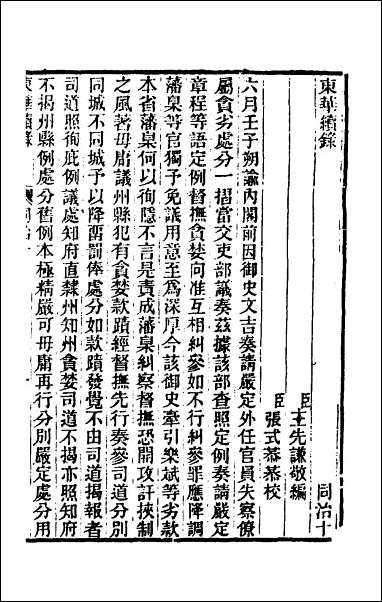 東華續錄
同治十
臣王先謙敬編
臣張式恭恭校
六月壬子朔諭內閣前因御史文吉奏請嚴定外任官員失察僚
屬貪劣處分一摺當交吏部議奏茲據該部查照定例奏請嚴定
章程等語定例督撫貪婪向准互相糾參如不行糾參罪應降調
藩臬等官獨予免議用意至爲深厚今該御史牽引樂斌等劣款
本省藩臬何以徇隱不言是責成藩臬糾察督撫恐開攻訐挾制
之風著毋庸議州縣犯有貪婪款蹟經督撫先行奏參司道分別
同城不同城予以降畱罰俸處分如款蹟發覺不由司道揭報者
司道照徇庇例議處知府直隸州知州貪婪司道不揭亦照知府
不揭州縣例處分舊例本極精嚴可毋庸再行分別嚴定處分用